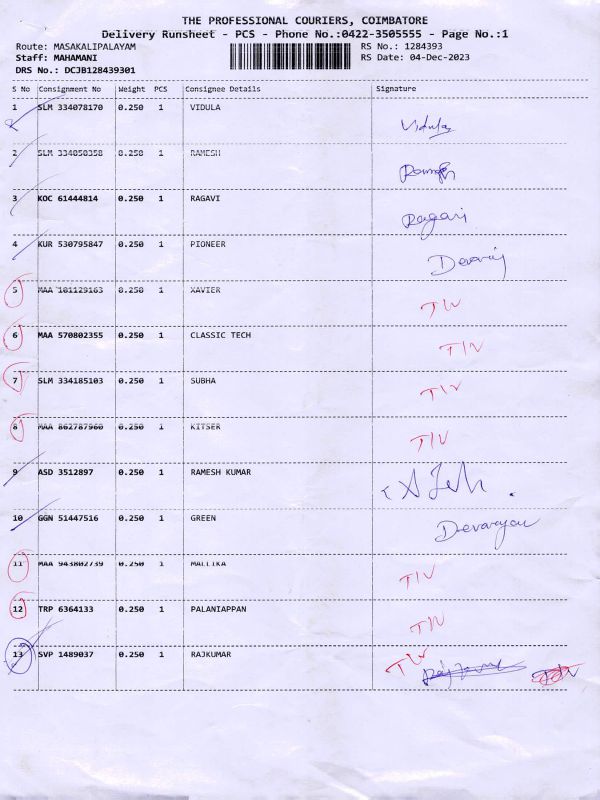 THE PROFESSIONAL COURIERS, COIMBATORE
Delivery Runsheet - PCS - Phone No.:0422-3505555 - Page No.:1
Route: MASAKALIPALAYAM RS No.: 1284393
Staff: MAHAMANI RS Date: 04-Dec-2023
DRS No.: DCJB128439301
S No Consignment No Weight PCS Consignee Details Signature
1 SLM 334078170 0.250 1 VIDULA Vidula
2 SLM 334050358 0.250 1 RAMESH Ramesh
3 KOC 61444814 0.250 1 RAGAVI Ragavi
4 KUR 530795847 0.250 1 PIONEER Devaraj
5 MAA 101129163 0.250 1 XAVIER TIV
6 MAA 570802355 0.250 1 CLASSIC TECH TIV
7 SLM 334185103 0.250 1 SUBHA TIV
8 MAA 862787960 0.250 1 KITSER TIV
9 ASD 3512897 0.250 1 RAMESH KUMAR
10 GGN 51447516 0.250 1 GREEN Devarajan
11 MAA 943802739 0.250 1 MALLIKA TIV
12 TRP 6364133 0.250 1 PALANIAPPAN TIV
13 SVP 1489037 0.250 1 RAJKUMAR TIV